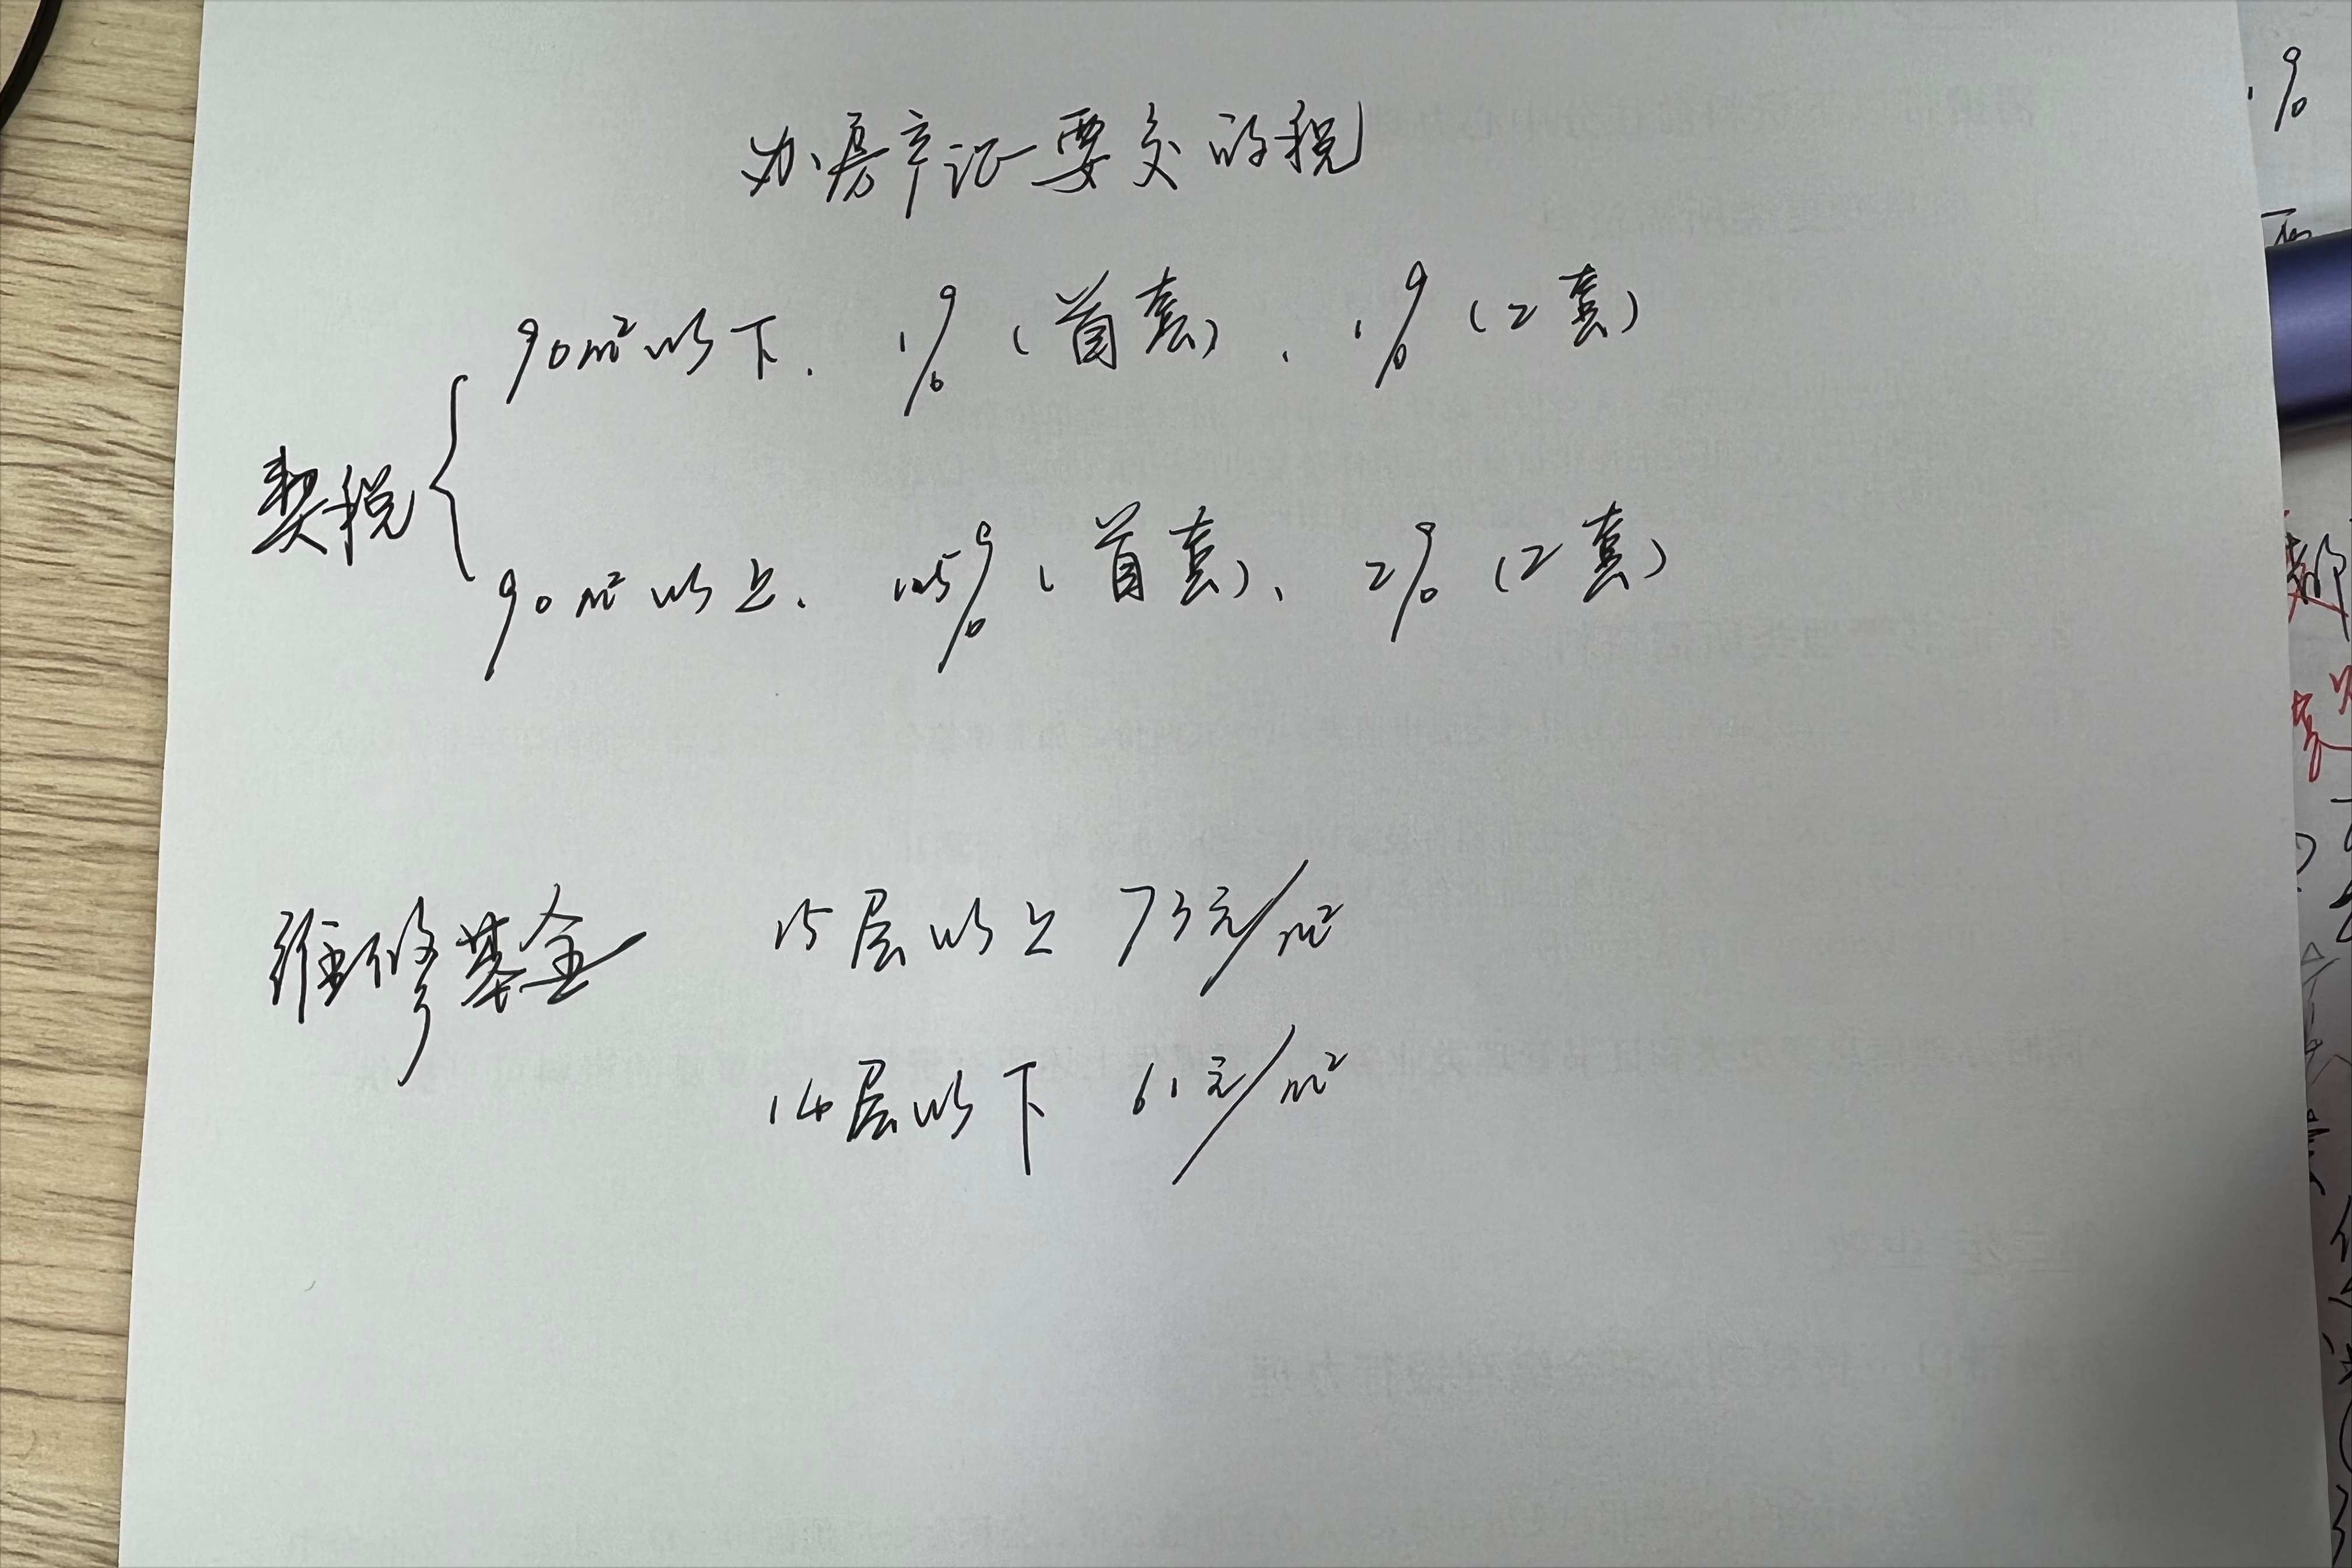 办房产证要交的税
90m²以下. 1% (首套)、1% (2套)
契税
90m²以上. 1.5% (首套)、2% (2套)
维修基金 15层以上 73元/m²
14层以下 61元/m²
1%